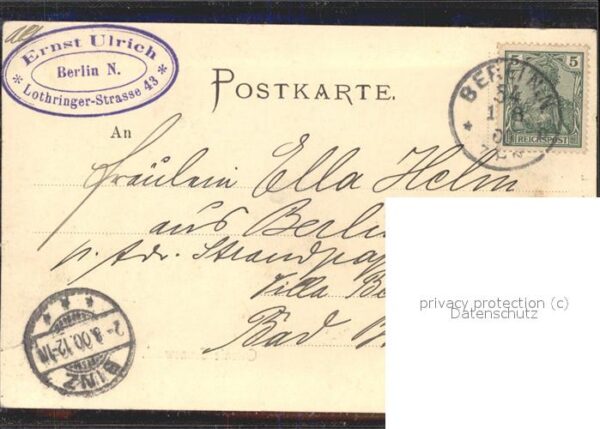 Ernst Ulrich
Berlin N.
* Lothringer-Strasse 43 *
POSTKARTE.
5
REICHSPOST
BERLIN N
54
1 8
7
An
Fräulein Ella Helm
aus Berlin
p. Adr. Strandpa
Villa Be
Bad B
BINZ
2 8.00.12-1N
privacy protection (c)
Datenschutz